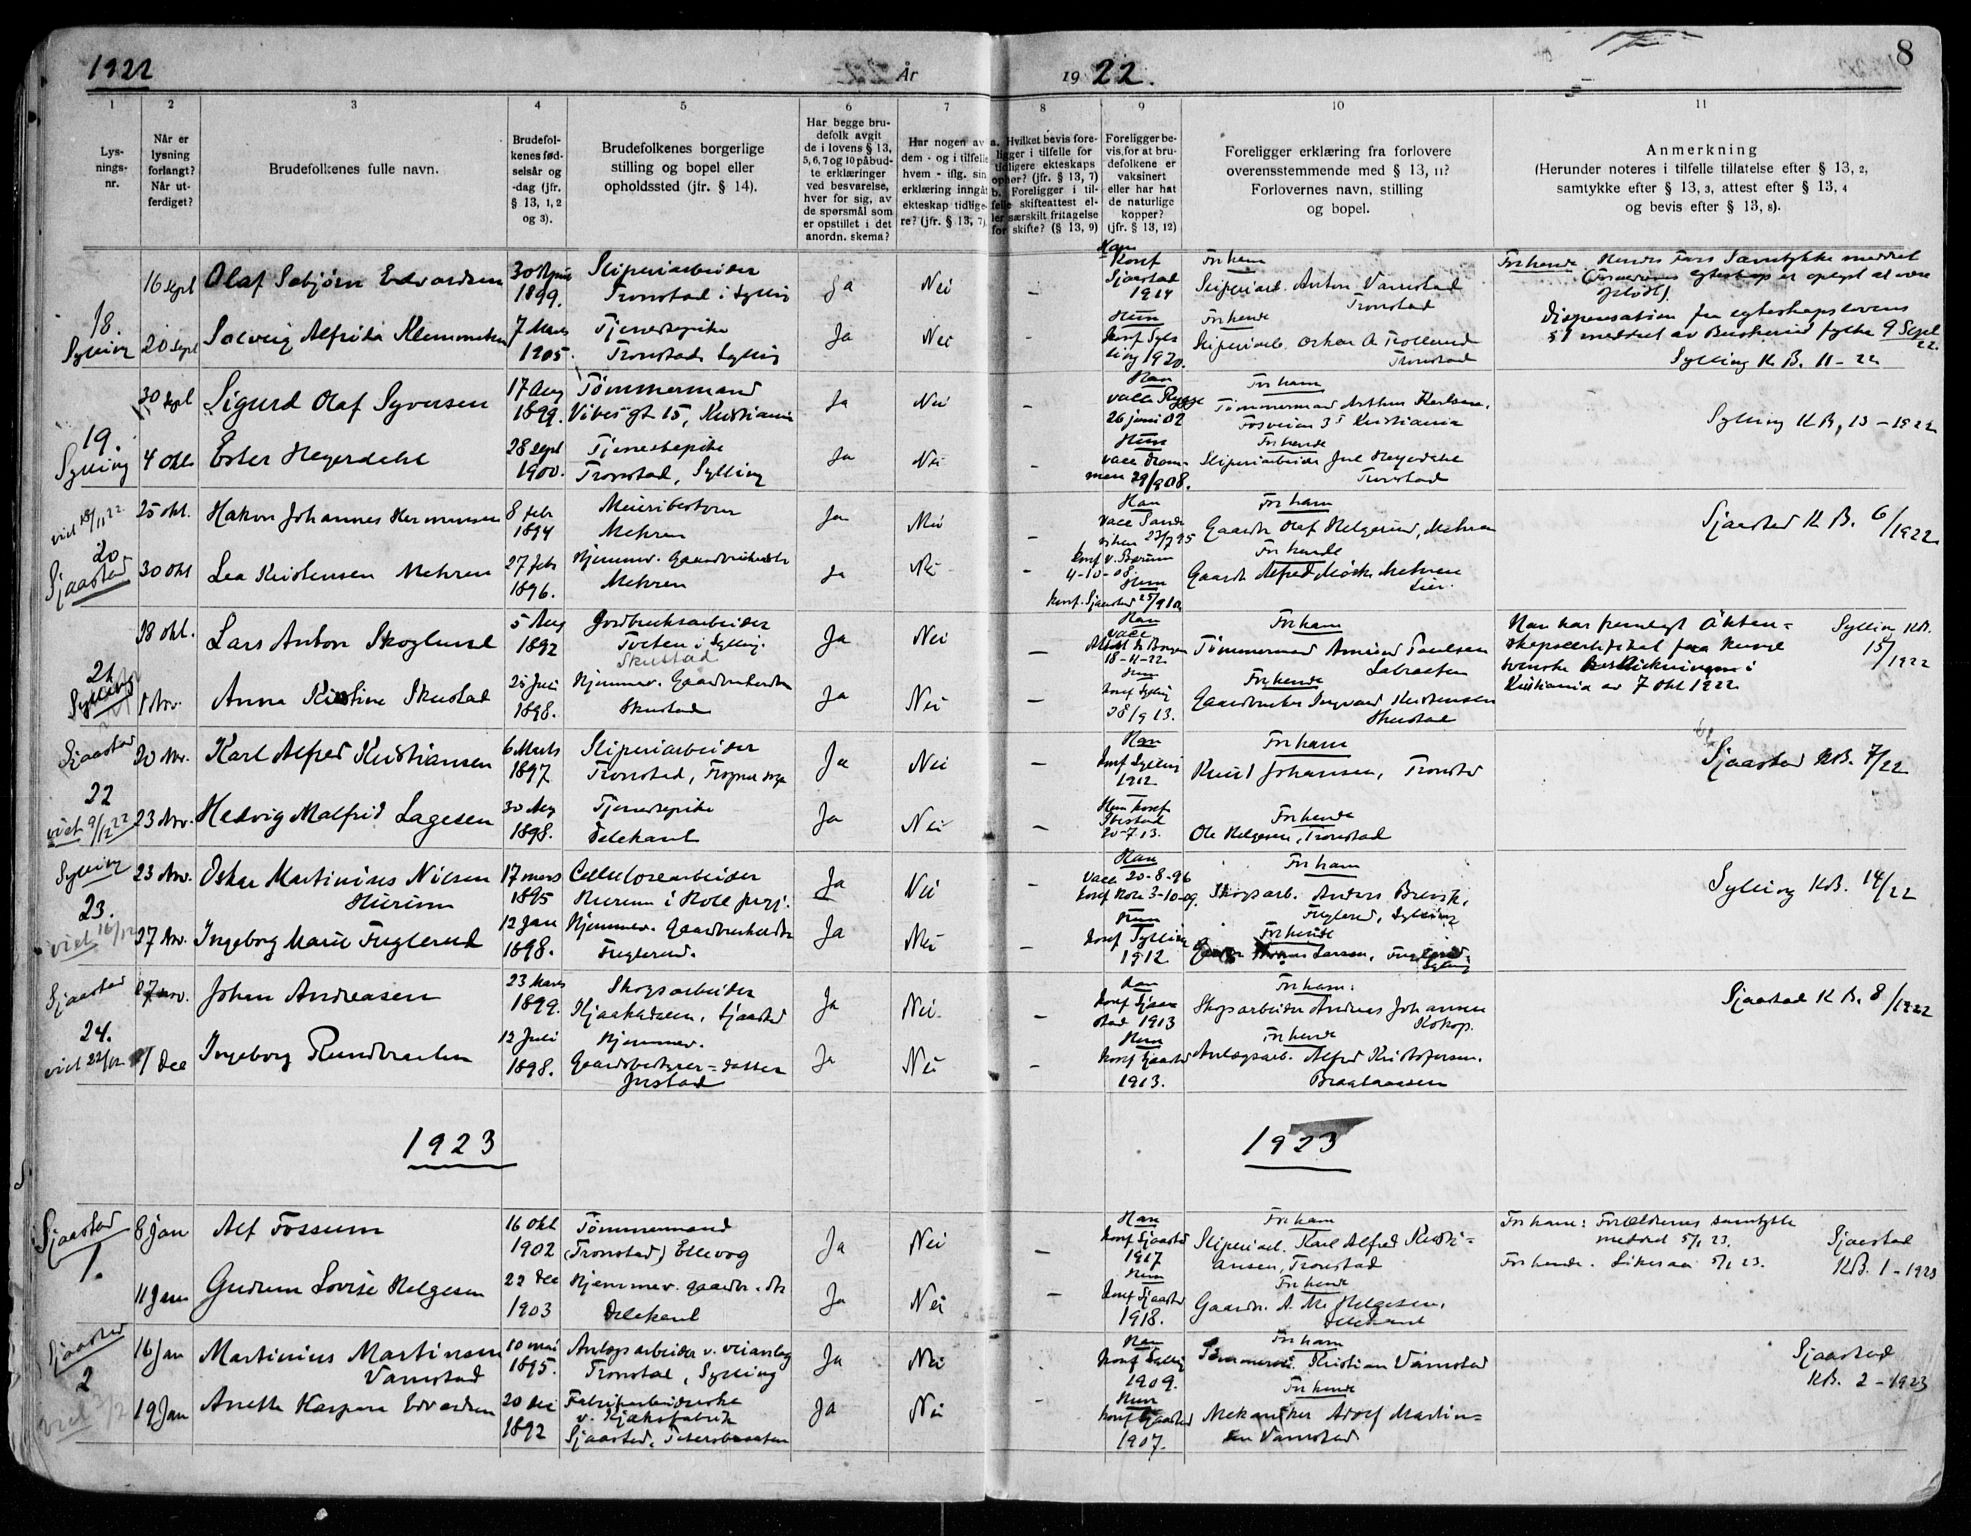 1922
År
19 22.
8
1
2
3
4
5
6
7
8
9
10
11
Lys-
nings-
nr.
Når er
lysning
forlangt?
Når ut-
ferdiget?
Brudefolkenes fulle navn.
Brudefol-
kenes fød-
selsår og
-dag (jfr.
§ 13, 1, 2
og 3).
Brudefolkenes borgerlige
stilling og bopel eller
opholdssted (jfr. § 14).
Har begge bru-
defolk avgit
de i lovens § 13,
5, 6, 7 og 10 påbud-
te erklæringer
ved besvarelse,
hver for sig, av
de spørsmål som
er opstillet i det
anordn. skema?
Har nogen av
dem - og i tilfelle
hvem - iflg. sin
erklæring inngåt
ekteskap tidlige-
re? (jfr. § 13, 7)
a. Hvilket bevis fore-
ligger i tilfelle for
tidligere ekteskaps
ophør? (jfr. § 13, 7)
b. Foreligger i til-
felle skifteattest el-
ler særskilt fritagelse
for skifte? (§ 13, 9)
Foreligger be-
vis, for at bru-
defolkene er
vaksinert
eller har hat
de naturlige
kopper?
(jfr. § 13, 12)
Foreligger erklæring fra forlovere
overensstemmende med § 13, 11?
Forlovernes navn, stilling
og bopel.
Anmerkning
(Herunder noteres i tilfelle tillatelse efter § 13, 2,
samtykke efter § 13, 3, attest efter § 13, 4
og bevis efter § 13, 8).
18.
Sylling
16 Sept
Olaf Edvardsen
30
1899.
Sliperiarbeider
Tronstad i Sylling
Ja
Nei
–
Han
Konf
Sjaastad
1914
For ham
Sliperiarb. Anton Vamstad
Tronstad
For hende Hendes Fars Samtykke meddelt
20 Sept
Solveig Alfrida Klemmetsen
7 Marts
1905.
Tjenestepike
Tronstad, Sylling
Ja
Nei
-
Hun
Konf Syl-
ling 1920.
For hende
Sliperiarb. Oskar A
Tronstad
Dispensation fra egteskapslovens
§ 1 meddelt av Buskerud fylke 9 Sept
22.
Sylling K. B. 11-22
19.
Sylling
30 Sept
Sigurd Olaf Syversen
17 Aug
1899.
Tømmermand
Vibes gt 15, Kristiania
Ja
Nei
–
Han
vacc Rygge
26 juni 02
For ham
Tømmermand Arthur Karlsen,
Fosveien 3 Kristiania
Sylling K B, 13-1922
4 Okt
Ester Heyerdahl
28 Sept
1900.
Tjenestepike
Tronstad, Sylling
Ja
Nei
–
Hun
vacc Dram-
men 29/9 08.
For hende
Sliperiarbeider Juel Heyerdahl
Tronstad
viet 18/11 22
20
Sjaastad
25 okt.
Hakon Johannes Hermansen
8 febr
1894
Meieribestyrer
Mehren
Ja
Nei
–
Han
vacc Sande-
viken 23/7 95
Konf v. Bærum
4-10-08
For ham
Gaardbr Olaf Helgerud, Mehren
Sjaastad K B. 6/1922
30 Okt
Lea Kristensen Mehren
27 feb
1896.
Hjemmev. Gaardbrukerdtr
Mehren
Ja
Nei
-
Hun
Konf. Sjaastad 25/9 10
For hende
Gaardbr Alfred Mehren
Lier.
21
Sylling
28 Okt.
Lars Anton Skoglund
5 Aug
1892
Jordbruksarbeider
Tveten i Sylling.
Skustad
Ja
Nei
–
Han
vacc
18-11-22
For ham
Tømmermand Amund Paulsen
Labraaten
Han har fremlagt Äkten-
skapscertifikat fra Kungl
svenske Beskickningen i
Kristiania av 7 Okt 1922
Sylling KB.
15/1922
1 Nov.
Anna Kristine Skustad
25 Juli
1898.
Hjemmev. Gaardbrukerdtr
Skustad
Ja
Nei
–
Hun
Konf Sylling
28/9 13.
For hende
Gaardbruker Ingvald Kristensen
Skustad
Sjaastad
22
viet 9/12 22
20 Nov.
Karl Alfred Kristiansen
6 Marts
1897
Sliperiarbeider
Tronstad, Frogner sogn
Ja
Nei
–
Han
Konf Sylling
1912
For ham
Knut Johansen, Tronstad
Sjaastad KB. 7/22
23 Nov.
Hedvig Malfrid Lagesen
30 Aug
1898.
Tjenestepike
Delekant
Ja
Nei
–
Hun Konf
Ibestad
20-7-13.
For hende
Ole Helgesen, Tronstad
Sylling
23.
viet 16/12
23 Nov.
Oskar Martinius Nilsen
Hurum
17 mars
1895
Cellulosearbeider
Hurum i
Ja
Nei
–
Han
Vacc 20-8-96
For ham
Skogsarb. Anders
Fuglerud, Sylling
Sylling KB. 14/22
27 Nov.
Ingeborg Marie Fuglerud
12 Jan
1898.
Hjemmev. Gaardbrukerdtr
Fuglerud.
Ja
Nei
–
Hun
Konf Sylling
1912
For hende
Larsen, Fuglerud
Sylling
Sjaastad
24.
viet 22/12
27 nov.
Johan Andreasen
23 Mars
1899.
Skogsarbeider
Sjaastad
Ja
Nei.
–
Han
Konf Sjaa-
stad 1913
For ham:
Skogsarbeider Andreas Johansen
Kokop.
Sjaastad K B. 8/1922
1 Dec
Ingeborg Rundbraaten
12 Juli
1898.
Hjemmev.
Gaardbestyrer-datter
Justad
Ja
Nei
–
Hun
Konf Sjaastad
1913.
For hende
Anlægsarb. Alfred Kristofersen.
Braataasen
1923
1923
Sjaastad
1.
8 Jan
Alf Fossum
16 Okt
1902
Tømmermand
(Tronstad) Ellevog
Ja
Nei
–
Han
Konf Sjaastad
1917
For ham
Sliperiarb. Karl Alfred Kristi-
ansen, Tronstad
For ham: Forældrenes samtykke
meddelt 5/1 23.
Sjaastad
KB. 1-1923
11 Jan
Gudrun Lovise Helgesen
22 Dec
1903
Hjemmev. gaardbr. dtr
Delekant
Ja
Nei
–
Hun
Konf Sjaastad
1918.
For hende
Gaardbr. A. Helgesen,
Delekant
For hende. Likesaa 5/1 23.
Sjaastad
2
viet 3/2
16 Jan
Martinius Martinsen
Vamstad
10 mai
1895.
Anlægsarbeider v. veianlæg
Tronstad, Sylling
Ja
Nei
-
Han
Konf Sylling
1909.
For ham
Kristian Vamstad
Sjaastad
KB. 2-1923
19 Jan
Anette Kaspara Edvardsen
20 Dec
1892
Fabrikarbeiderske
v. Kjæksfabrik
Sjaastad, Petersbraaten
Ja
Nei
-
Hun
Konf Sjaastad
1907.
For hende
Mekaniker Adolf Martin-
sen Vamstad